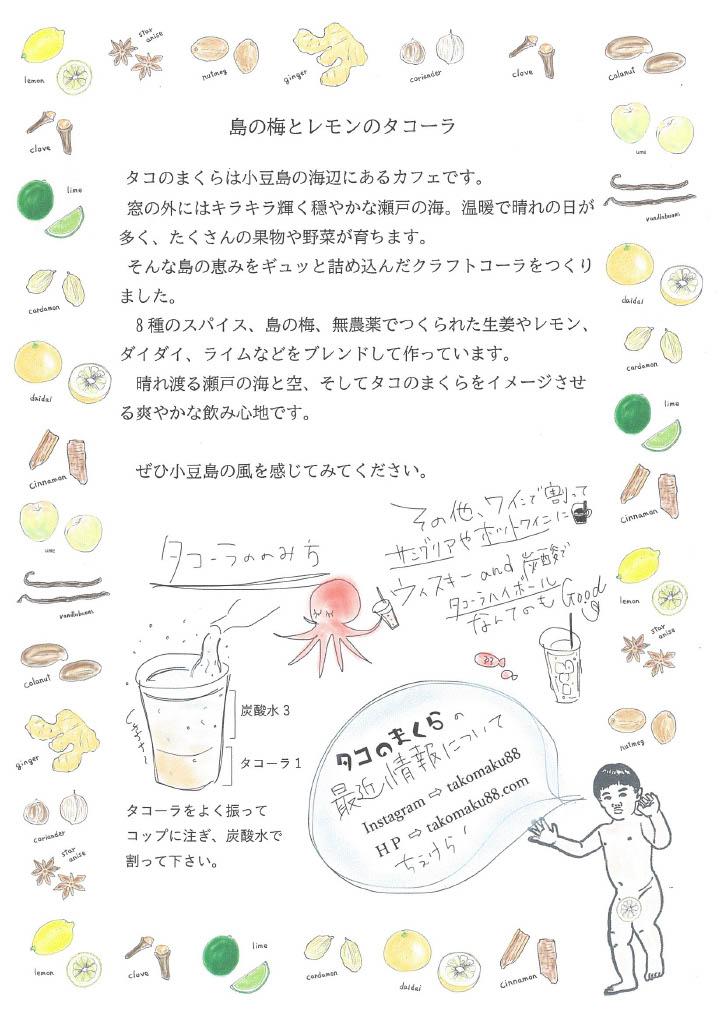 lemon
star anise
nutmeg
ginger
coriander
clove
colanut
clove
lime
cardamon
daidai
cinnamon
ume
vanillabeans
colanut
ginger
coriander
star anise
ume
vanillabeans
daidai
cardamon
lime
cinnamon
lemon
star anise
nutmeg
島の梅とレモンのタコーラ
タコのまくらは小豆島の海辺にあるカフェです。
窓の外にはキラキラ輝く穏やかな瀬戸の海。温暖で晴れの日が
多く、たくさんの果物や野菜が育ちます。
そんな島の恵みをギュッと詰め込んだクラフトコーラをつくり
ました。
8種のスパイス、島の梅、無農薬でつくられた生姜やレモン、
ダイダイ、ライムなどをブレンドして作っています。
晴れ渡る瀬戸の海と空、そしてタコのまくらをイメージさせ
る爽やかな飲み心地です。
ぜひ小豆島の風を感じてみてください。
その他、ワインで割って
サングリアやホットワインに
ウィスキー and 炭酸で
タコーラハイボール
なんてのも Good
タコーラののみち
炭酸水 3
タコーラ 1
タコーラをよく振って
コップに注ぎ、炭酸水で
割って下さい。
タコのまくらの
最近情報について
Instagram ⇨ takomaku88
HP ⇨ takomaku88.com
lemon
clove
lime
cardamon
daidai
cinnamon